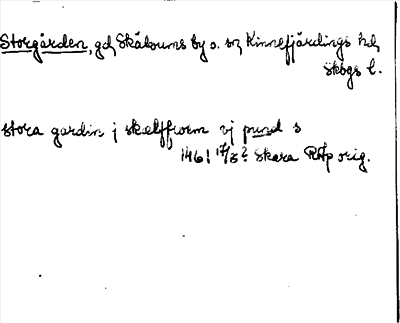 Storgården, gd, Skälvums by o. sn, Kinnefjärdings hd,
Skbgs l.
stora gardin j skælffwom vj pund s
1461 17/3? Skara RAp orig.